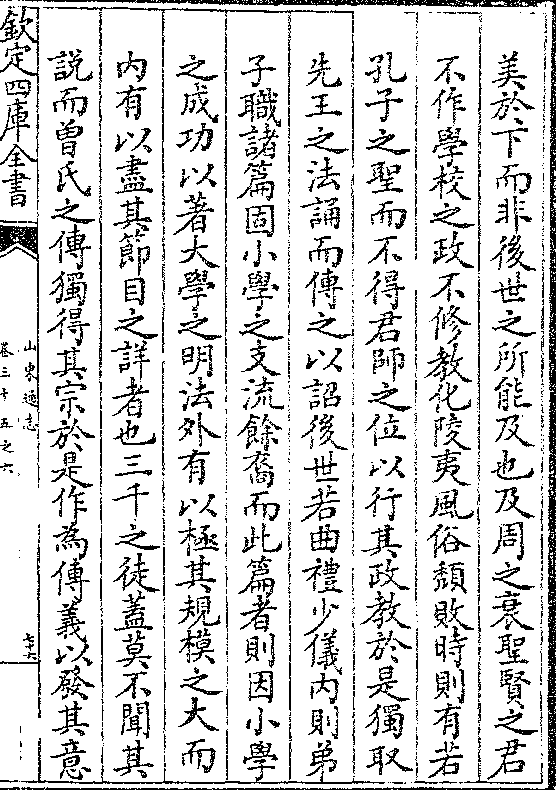 美於下而非後世之所能及也及周之衰聖賢之君
不作學校之政不修教化陵夷風俗頽敗時則有若
孔子之聖而不得君師之位以行其政教於是獨取
先王之法誦而傳之以詔後世若曲禮少儀内則弟
子職諸篇固小學之支流餘裔而此篇者則因小學
之成功以著大學之明法外有以極其規模之大而
内有以盡其節目之詳者也三千之徒蓋莫不聞其
説而曽氏之傳獨得其宗於是作為傳義以發其意
欽定四庫全書
山東通志
卷三十五之六
七十六